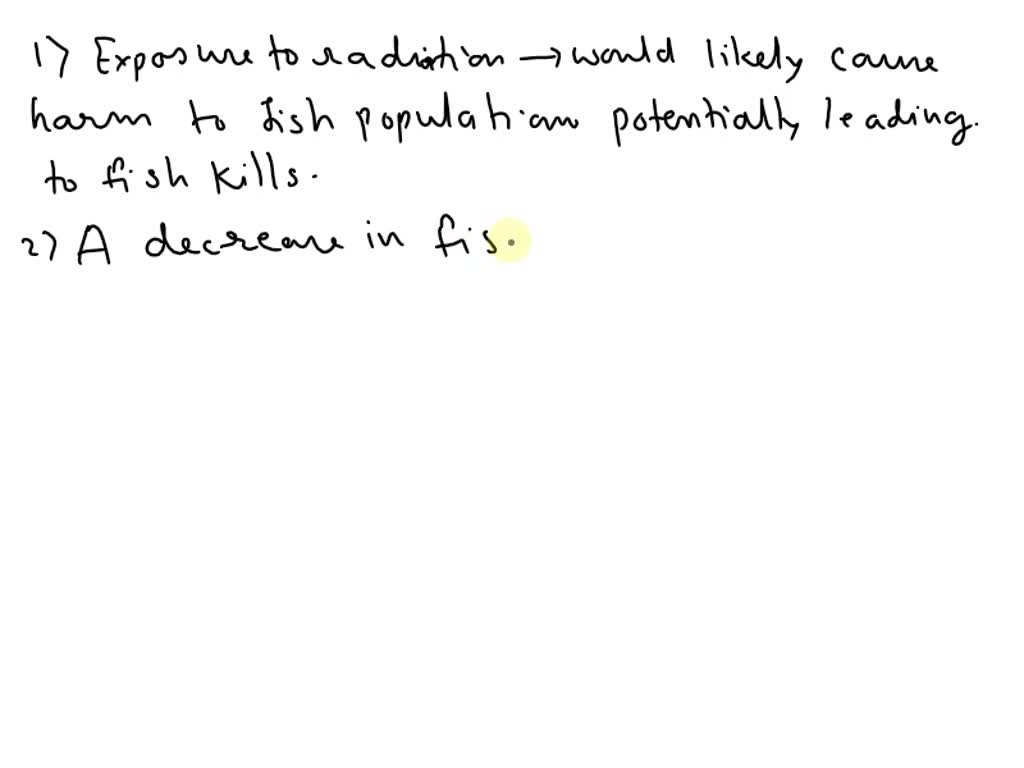 1) Exposure to radiation → would likely cause
harm to fish population potentially leading.
to fish kills.
2) A decrease in fis